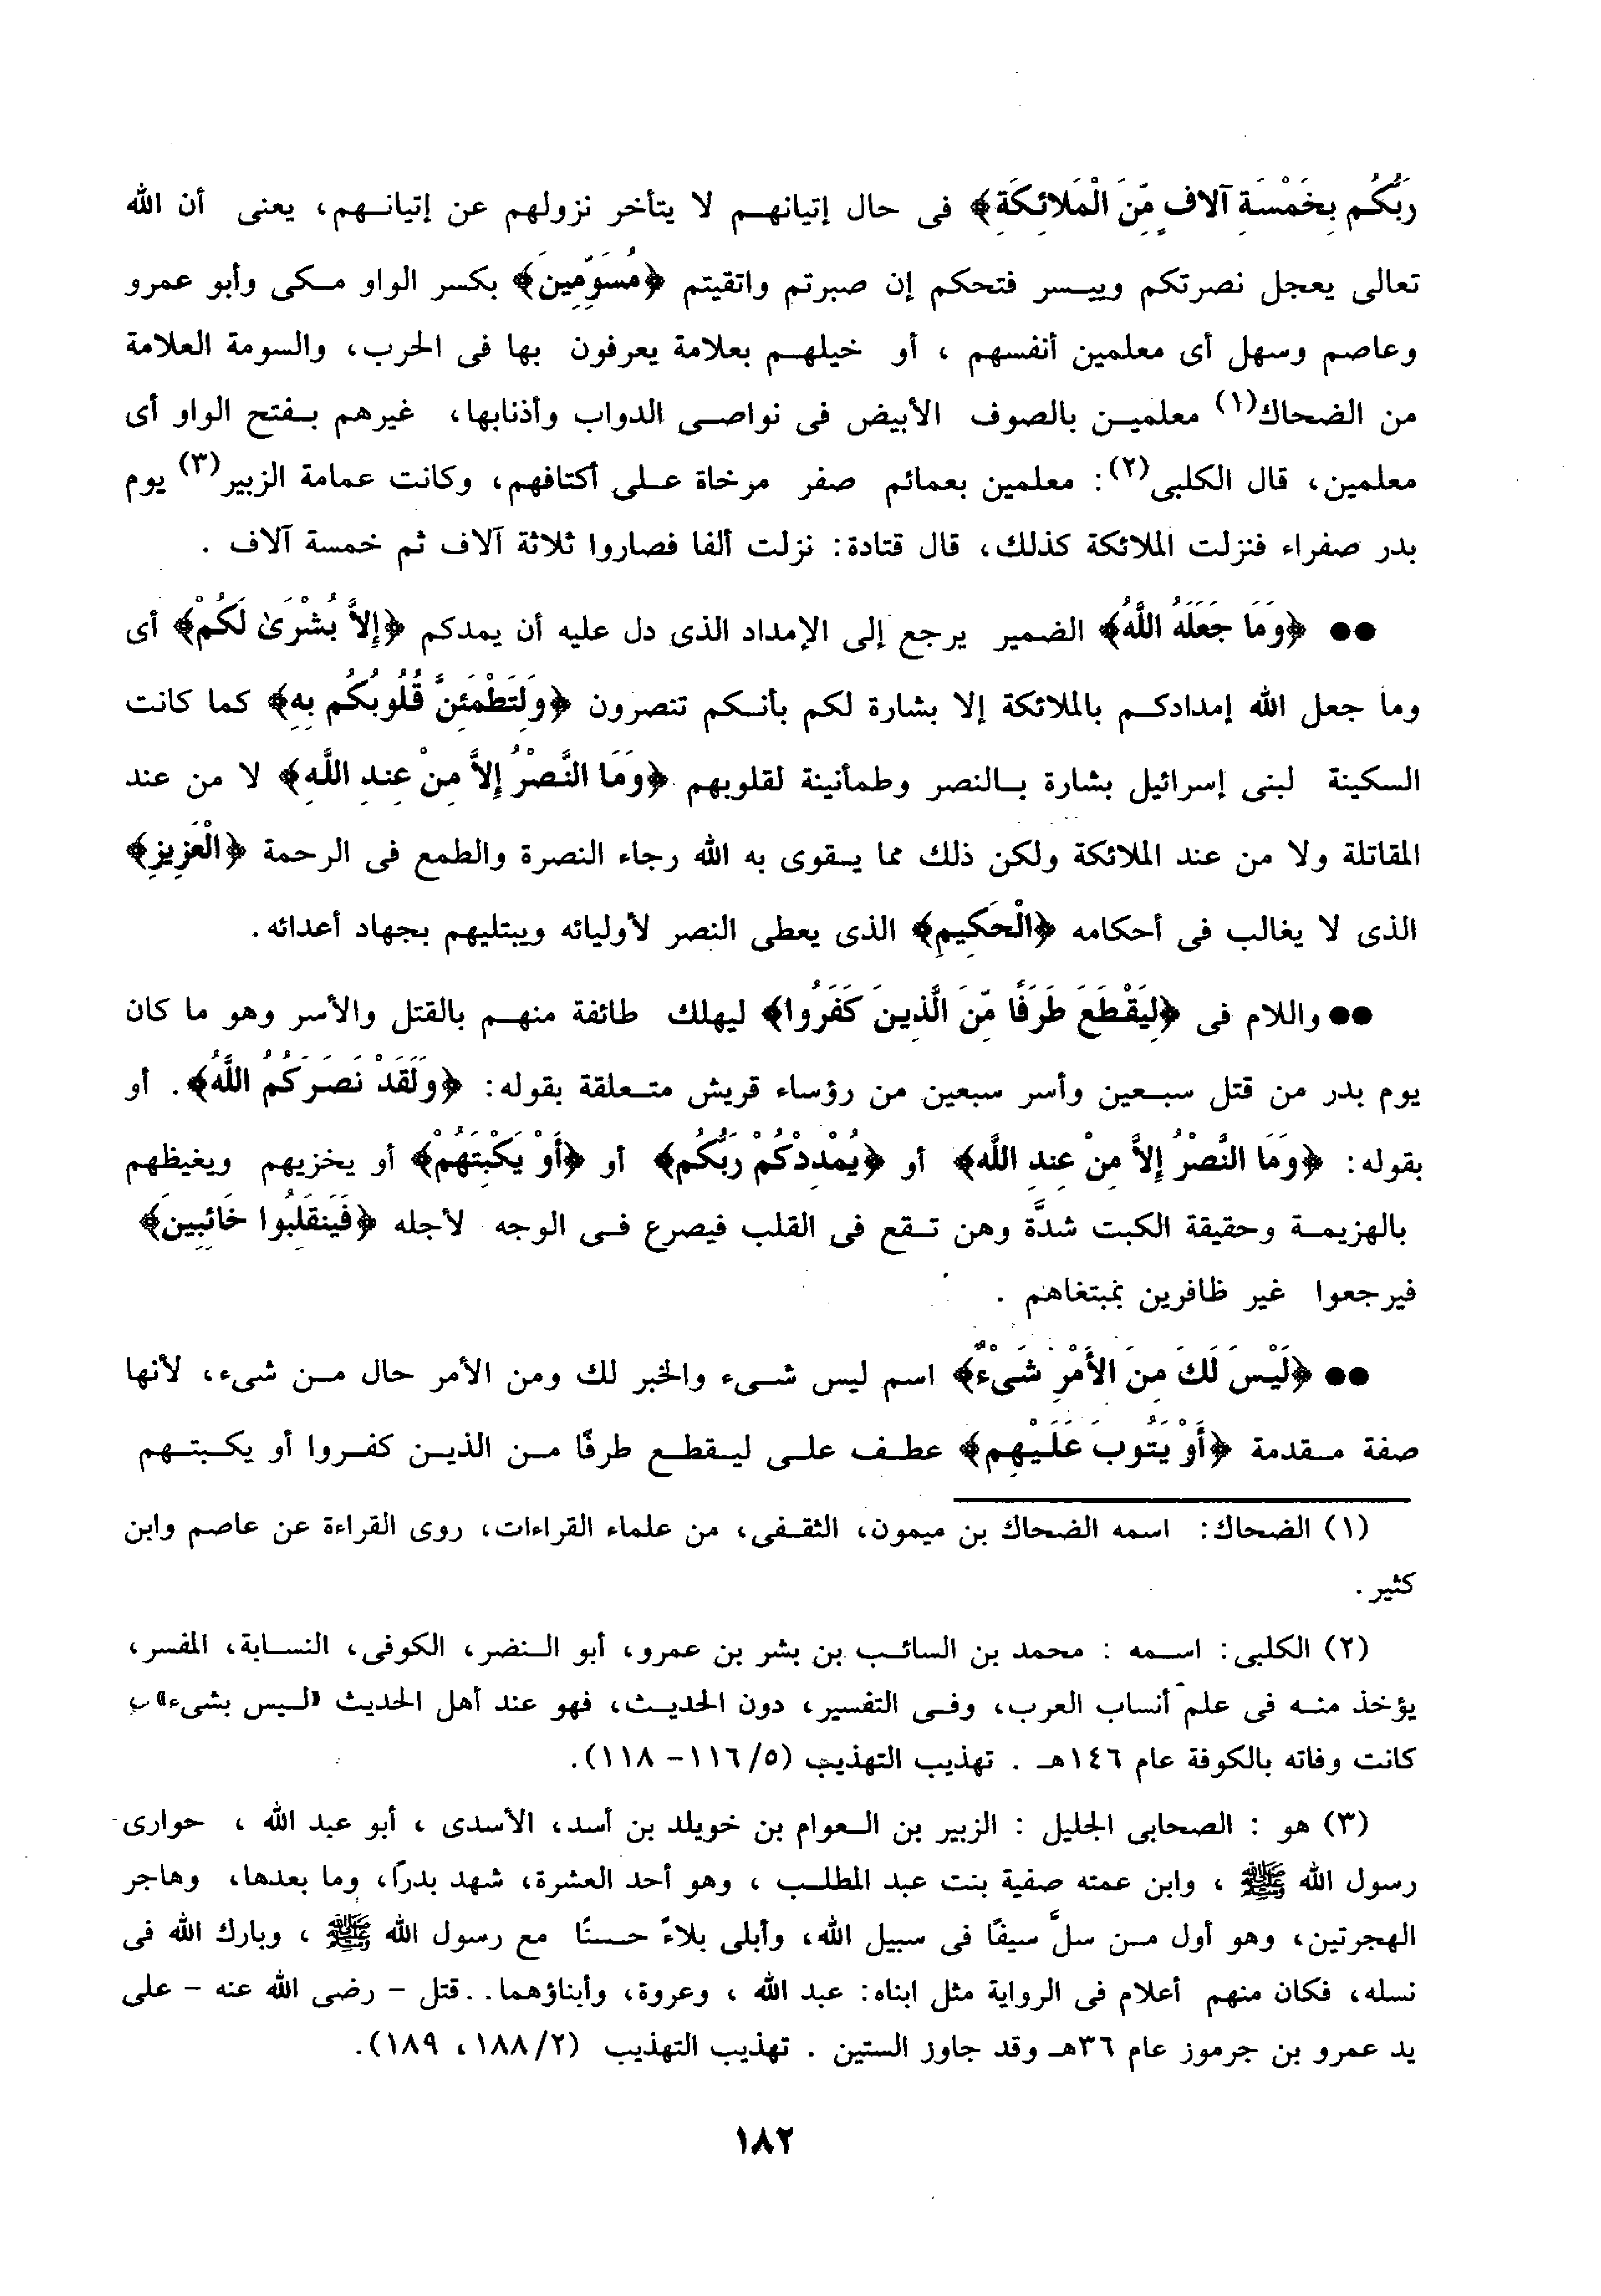 رَبُّكُم بِخَمْسَةِ آلافٍ مِّنَ الْمَلائِكَةِ﴾ فى حال إتيانهم لا يتأخر نزولهم عن إتيانهم، يعنى أن الله
تعالى يعجل نصرتكم وييسر فتحكم إن صبرتم واتقيتم ﴿مُسَوِّمِينَ﴾ بكسر الواو مكى وأبو عمرو
وعاصم وسهل أى معلمين أنفسهم ، أو خيلهم بعلامة يعرفون بها فى الحرب، والسومة العلامة
من الضحاك(١) معلمين بالصوف الأبيض فى نواصى الدواب وأذنابها، غيرهم بفتح الواو أى
معلمين، قال الكلبى(٢): معلمين بعمائم صفر مرخاة على أكتافهم، وكانت عمامة الزبير(٣) يوم
بدر صفراء فنزلت الملائكة كذلك، قال قتادة: نزلت ألفا فصاروا ثلاثة آلاف ثم خمسة آلاف .
●● ﴿وَمَا جَعَلَهُ اللَّهُ﴾ الضمير يرجع إلى الإمداد الذى دل عليه أن يمدكم ﴿إِلاَّ بُشْرَىٰ لَكُمْ﴾ أى
وما جعل الله إمدادكم بالملائكة إلا بشارة لكم بأنكم تنصرون ﴿وَلِتَطْمَئِنَّ قُلُوبُكُم بِهِ﴾ كما كانت
السكينة لبنى إسرائيل بشارة بالنصر وطمأنينة لقلوبهم ﴿وَمَا النَّصْرُ إِلاَّ مِنْ عِندِ اللَّهِ﴾ لا من عند
المقاتلة ولا من عند الملائكة ولكن ذلك مما يقوى به الله رجاء النصرة والطمع فى الرحمة ﴿الْعَزِيزِ﴾
الذى لا يغالب فى أحكامه ﴿الْحَكِيمِ﴾ الذى يعطى النصر لأوليائه ويبتليهم بجهاد أعدائه.
●● واللام فى ﴿لِيَقْطَعَ طَرَفًا مِّنَ الَّذِينَ كَفَرُوا﴾ ليهلك طائفة منهم بالقتل والأسر وهو ما كان
يوم بدر من قتل سبعين وأسر سبعين من رؤساء قريش متعلقة بقوله: ﴿وَلَقَدْ نَصَرَكُمُ اللَّهُ﴾. أو
بقوله: ﴿وَمَا النَّصْرُ إِلاَّ مِنْ عِندِ اللَّهِ﴾ أو ﴿يُمْدِدْكُمْ رَبُّكُم﴾ أو ﴿أَوْ يَكْبِتَهُمْ﴾ أو يخزيهم ويغيظهم
بالهزيمة وحقيقة الكبت شدَّة وهن تقع فى القلب فيصرع فى الوجه لأجله ﴿فَيَنقَلِبُوا خَائِبِينَ﴾
فيرجعوا غير ظافرين بمبتغاهم .
●● ﴿لَيْسَ لَكَ مِنَ الأَمْرِ شَىْءٌ﴾ اسم ليس شىء والخبر لك ومن الأمر حال من شىء، لأنها
صفة مقدمة ﴿أَوْ يَتُوبَ عَلَيْهِم﴾ عطف على ليقطع طرفًا من الذين كفروا أو يكبتهم
(١) الضحاك: اسمه الضحاك بن ميمون، الثقفى، من علماء القراءات، روى القراءة عن عاصم وابن
كثير .
(٢) الكلبى: اسمه : محمد بن السائب بن بشر بن عمرو، أبو النضر، الكوفى، النسابة، المفسر،
يؤخذ منه فى علم أنساب العرب، وفى التفسير، دون الحديث، فهو عند أهل الحديث «ليس بشىء»،
كانت وفاته بالكوفة عام ١٤٦هـ . تهذيب التهذيب (٥/ ١١٦- ١١٨).
(٣) هو : الصحابى الجليل : الزبير بن العوام بن خويلد بن أسد، الأسدى ، أبو عبد الله ، حوارى
رسول الله ﷺ ، وابن عمته صفية بنت عبد المطلب ، وهو أحد العشرة، شهد بدراً، وما بعدها، وهاجر
الهجرتين، وهو أول من سلَّ سيفًا فى سبيل الله، وأبلى بلاءً حسنًا مع رسول الله ﷺ ، وبارك الله فى
نسله، فكان منهم أعلام فى الرواية مثل ابناه: عبد الله ، وعروة، وأبناؤهما.. قتل - رضى الله عنه - على
يد عمرو بن جرموز عام ٣٦هـ وقد جاوز الستين . تهذيب التهذيب (٢/ ١٨٨، ١٨٩).
١٨٢